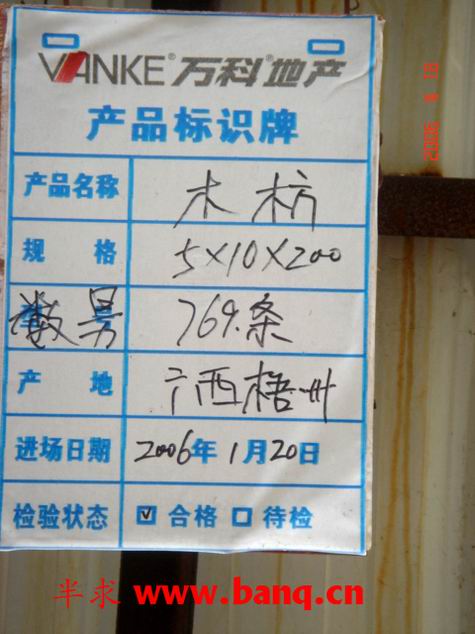 VANKE® 万科®地产
产品标识牌
产品名称 木枋
规格 5×10×200
数另 769条
产地 广西梧州
进场日期 2006年1月20日
检验状态 ☑合格 □待检
半求 www.banq.cn